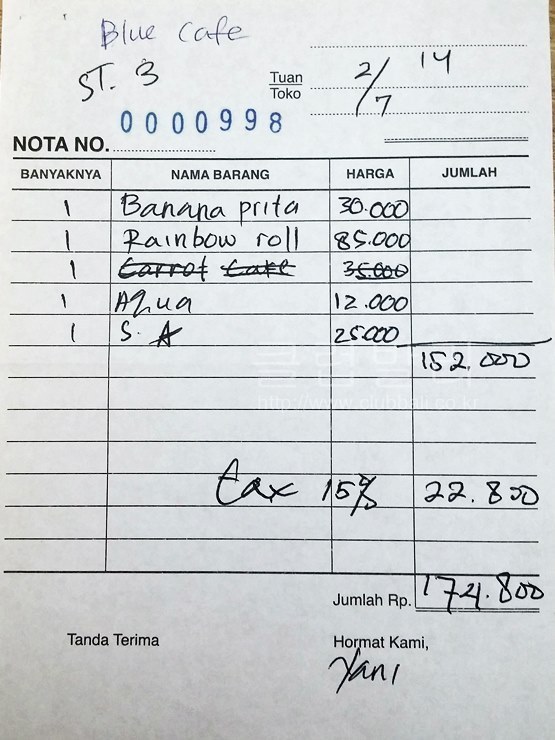 Blue Cafe
ST. 3
Tuan
Toko
2/7 14
0000998
NOTA NO.
BANYAKNYA NAMA BARANG HARGA JUMLAH
1 Banana prita 30.000
1 Rainbow roll 85.000
1 Carrot Cake 35.000
1 Aqua 12.000
1 S. A 25.000
152.000
클럽발리
http://www.clubbali.co.kr
tax 15% 22.800
Jumlah Rp. 174.800
Tanda Terima Hormat Kami,
Yani